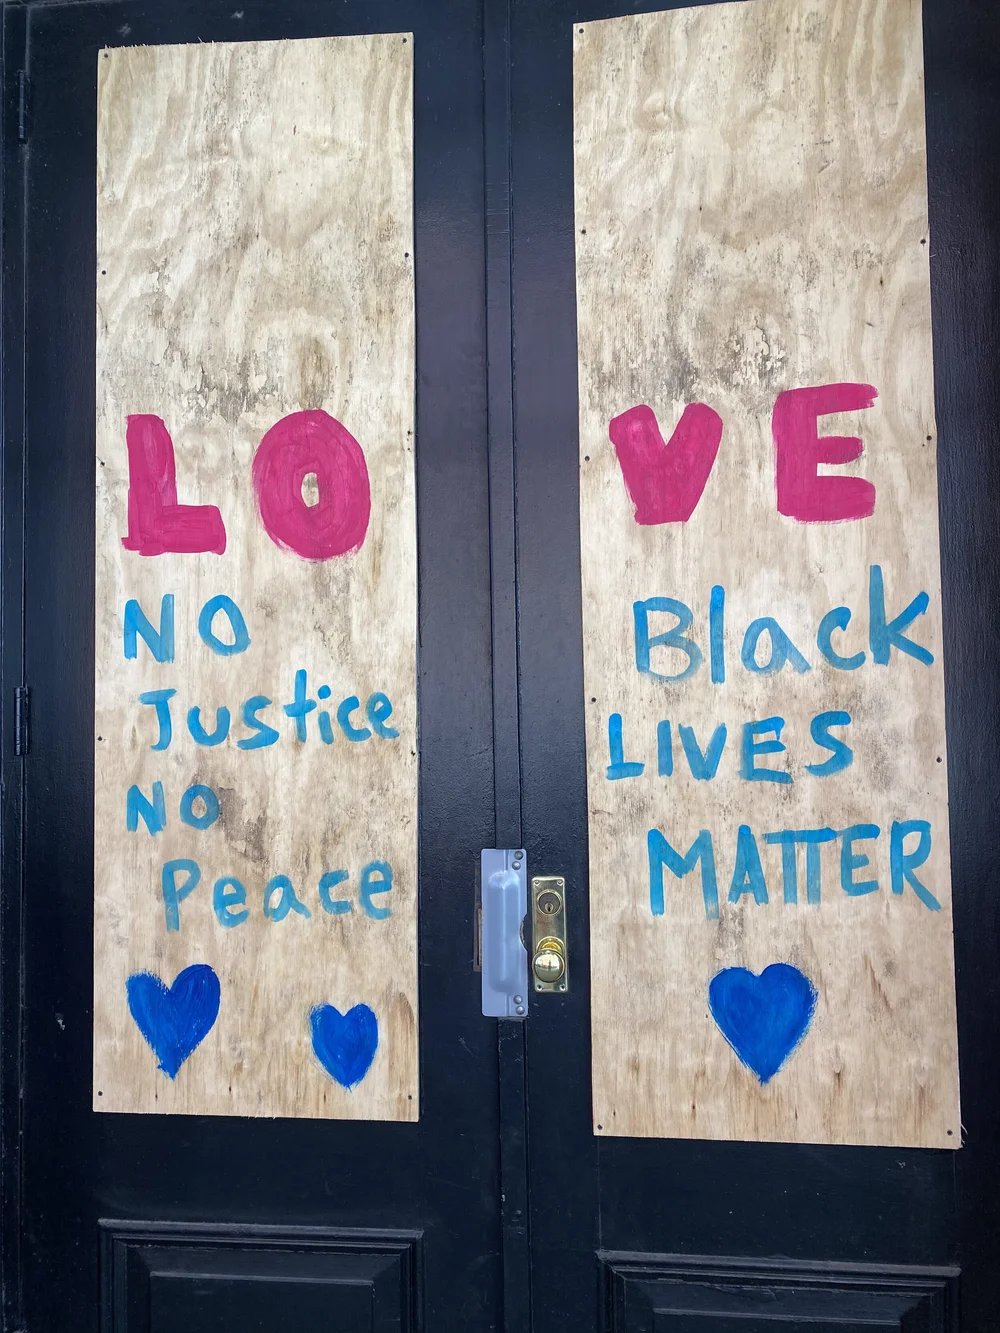 LOVE
NO
Justice
NO
Peace
Black
LIVES
MATTER